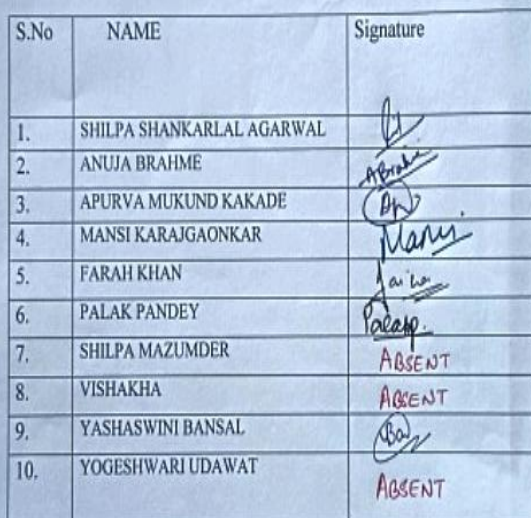 S.No NAME Signature
1. SHILPA SHANKARLAL AGARWAL
2. ANUJA BRAHME ABrahme
3. APURVA MUKUND KAKADE
4. MANSI KARAJGAONKAR
5. FARAH KHAN
6. PALAK PANDEY
7. SHILPA MAZUMDER ABSENT
8. VISHAKHA ABSENT
9. YASHASWINI BANSAL
10. YOGESHWARI UDAWAT ABSENT